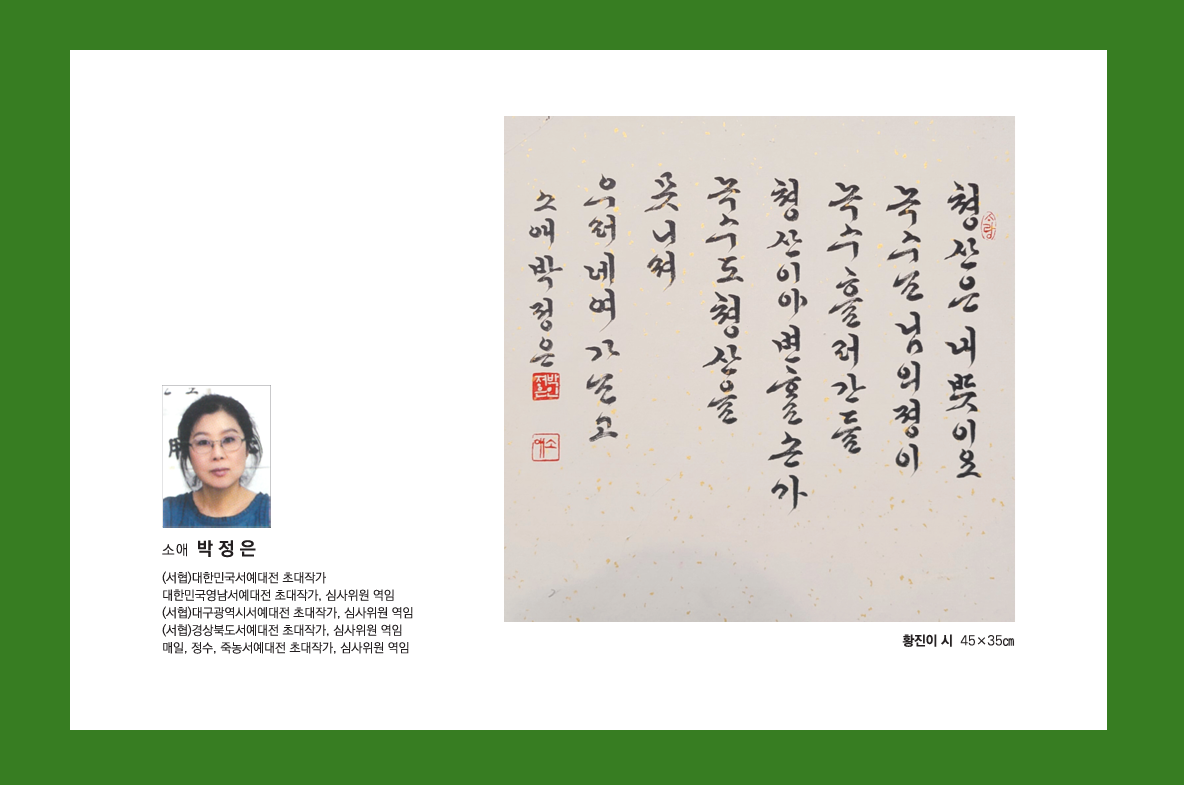 소애 박정은
(서협)대한민국서예대전 초대작가
대한민국영남서예대전 초대작가, 심사위원 역임
(서협)대구광역시서예대전 초대작가, 심사위원 역임
(서협)경상북도서예대전 초대작가, 심사위원 역임
매일, 정수, 죽농서예대전 초대작가, 심사위원 역임
쳥산은내뜻이오
녹수는님의졍이
녹수흘러간들
쳥산이야변할손가
녹수도쳥산을
못니져
우러네여가는고
소애박정은
소애
황진이 시 45×35㎝